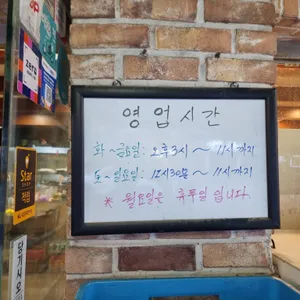 영업시간
화~금요일: 오후3시 ~ 11시까지
토~일요일: 12시30분 ~ 11시까지
※ 월요일은 휴무일 입니다
zero
Star
당기시오